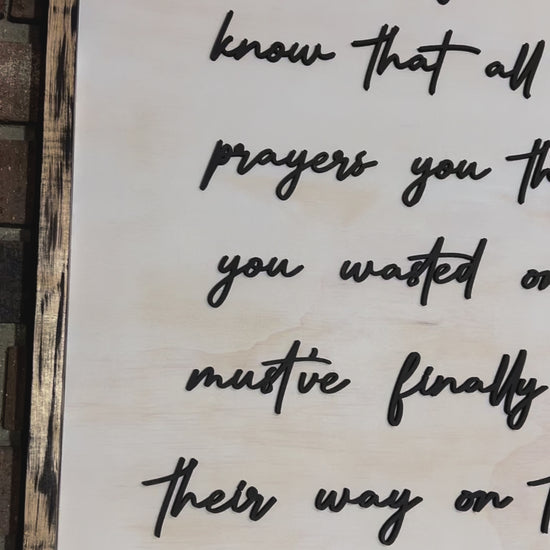 know that all
prayers you th
you wasted on
must've finally
their way on t